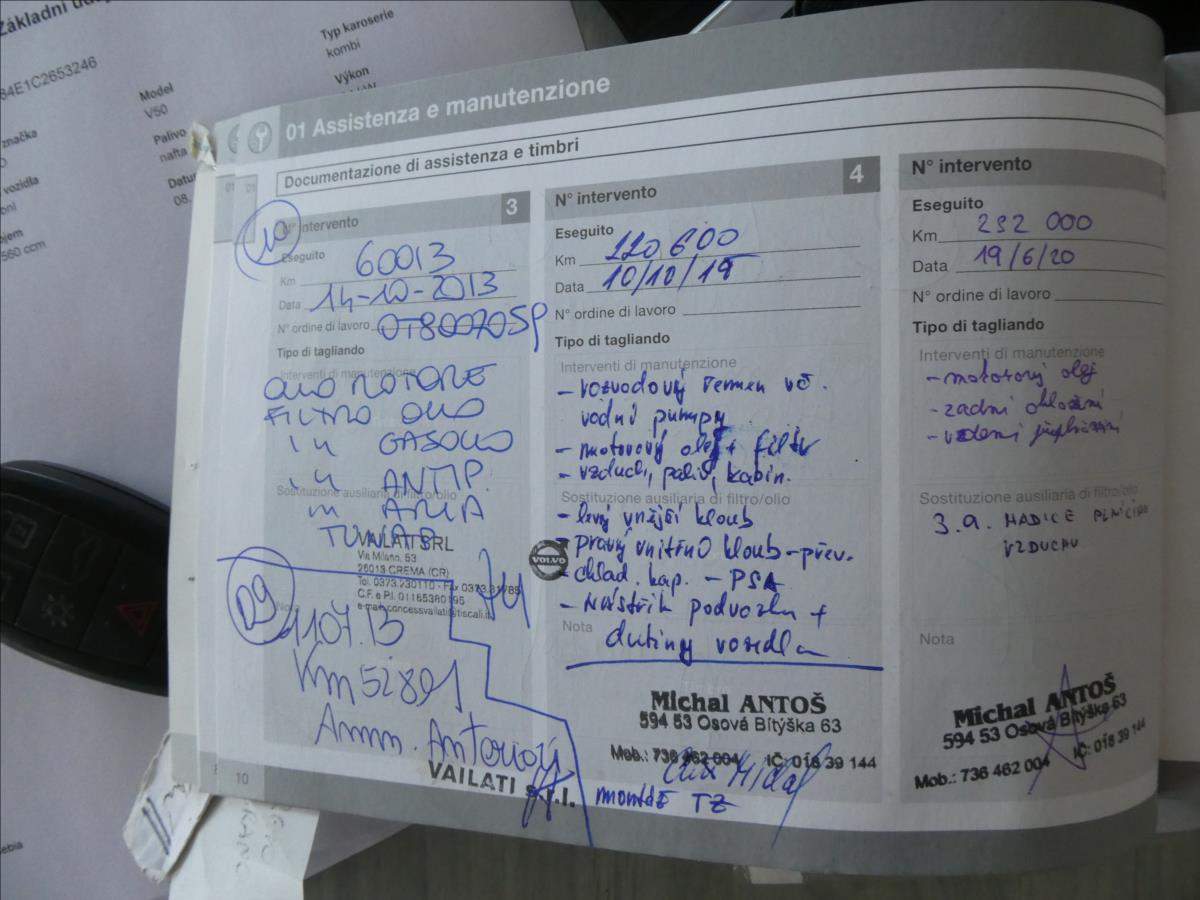 Základní úd
84E1C2653246
Model
V50
Typ karoserie
kombi
Výkon
značka
Palivo
nafta
vozidla
Datu
08.
560 ccm
01 Assistenza e manutenzione
Documentazione di assistenza e timbri
N° intervento 3
10
Eseguito
Km 60013
Data 14-10-2013
N° ordine di lavoro
Tipo di tagliando
Interventi di manutenzione
OLIO MOTORE
FILTRO OLIO
GASOLIO
ANTIP.
ARIA
Sostituzione ausiliaria di filtro/olio
VAILATI SRL
Via Milano, 53
26013 CREMA (CR)
Tel. 0373.230110 - Fax 0373.31785
C.F. e P.I. 01165380195
e-mail:concessvailati@tiscali.it
Nota
D9
Km 52891
VAILATI s.r.l.
10
N° intervento 4
Eseguito
Km 220 600
Data
N° ordine di lavoro
Tipo di tagliando
Interventi di manutenzione
- rozvodový řemen vč.
vodní pumpy
- motorový olej + filtr
- vzduch, paliv, kabin.
Sostituzione ausiliaria di filtro/olio
- levý vnější kloub
VOLVO
- pravý vnitřní kloub - přev.
- chlad. kap. - PSA
- Nástřik podvozku +
Nota dutiny vozidla
Michal ANTOŠ
594 53 Osová Bítýška 63
Mob.: 736 462 004 IČ: 018 39 144
montáž TZ
N° intervento
Eseguito
Km 232 000
Data 19/6/20
N° ordine di lavoro
Tipo di tagliando
Interventi di manutenzione
- motorový olej
- zadní
Sostituzione ausiliaria di filtro/olio
HADICE PLNÍCÍHO
VZDUCHU
Nota
Michal ANTOŠ
594 53 Osová Bítýška 63
Mob.: 736 462 004 IČ: 018 39 144